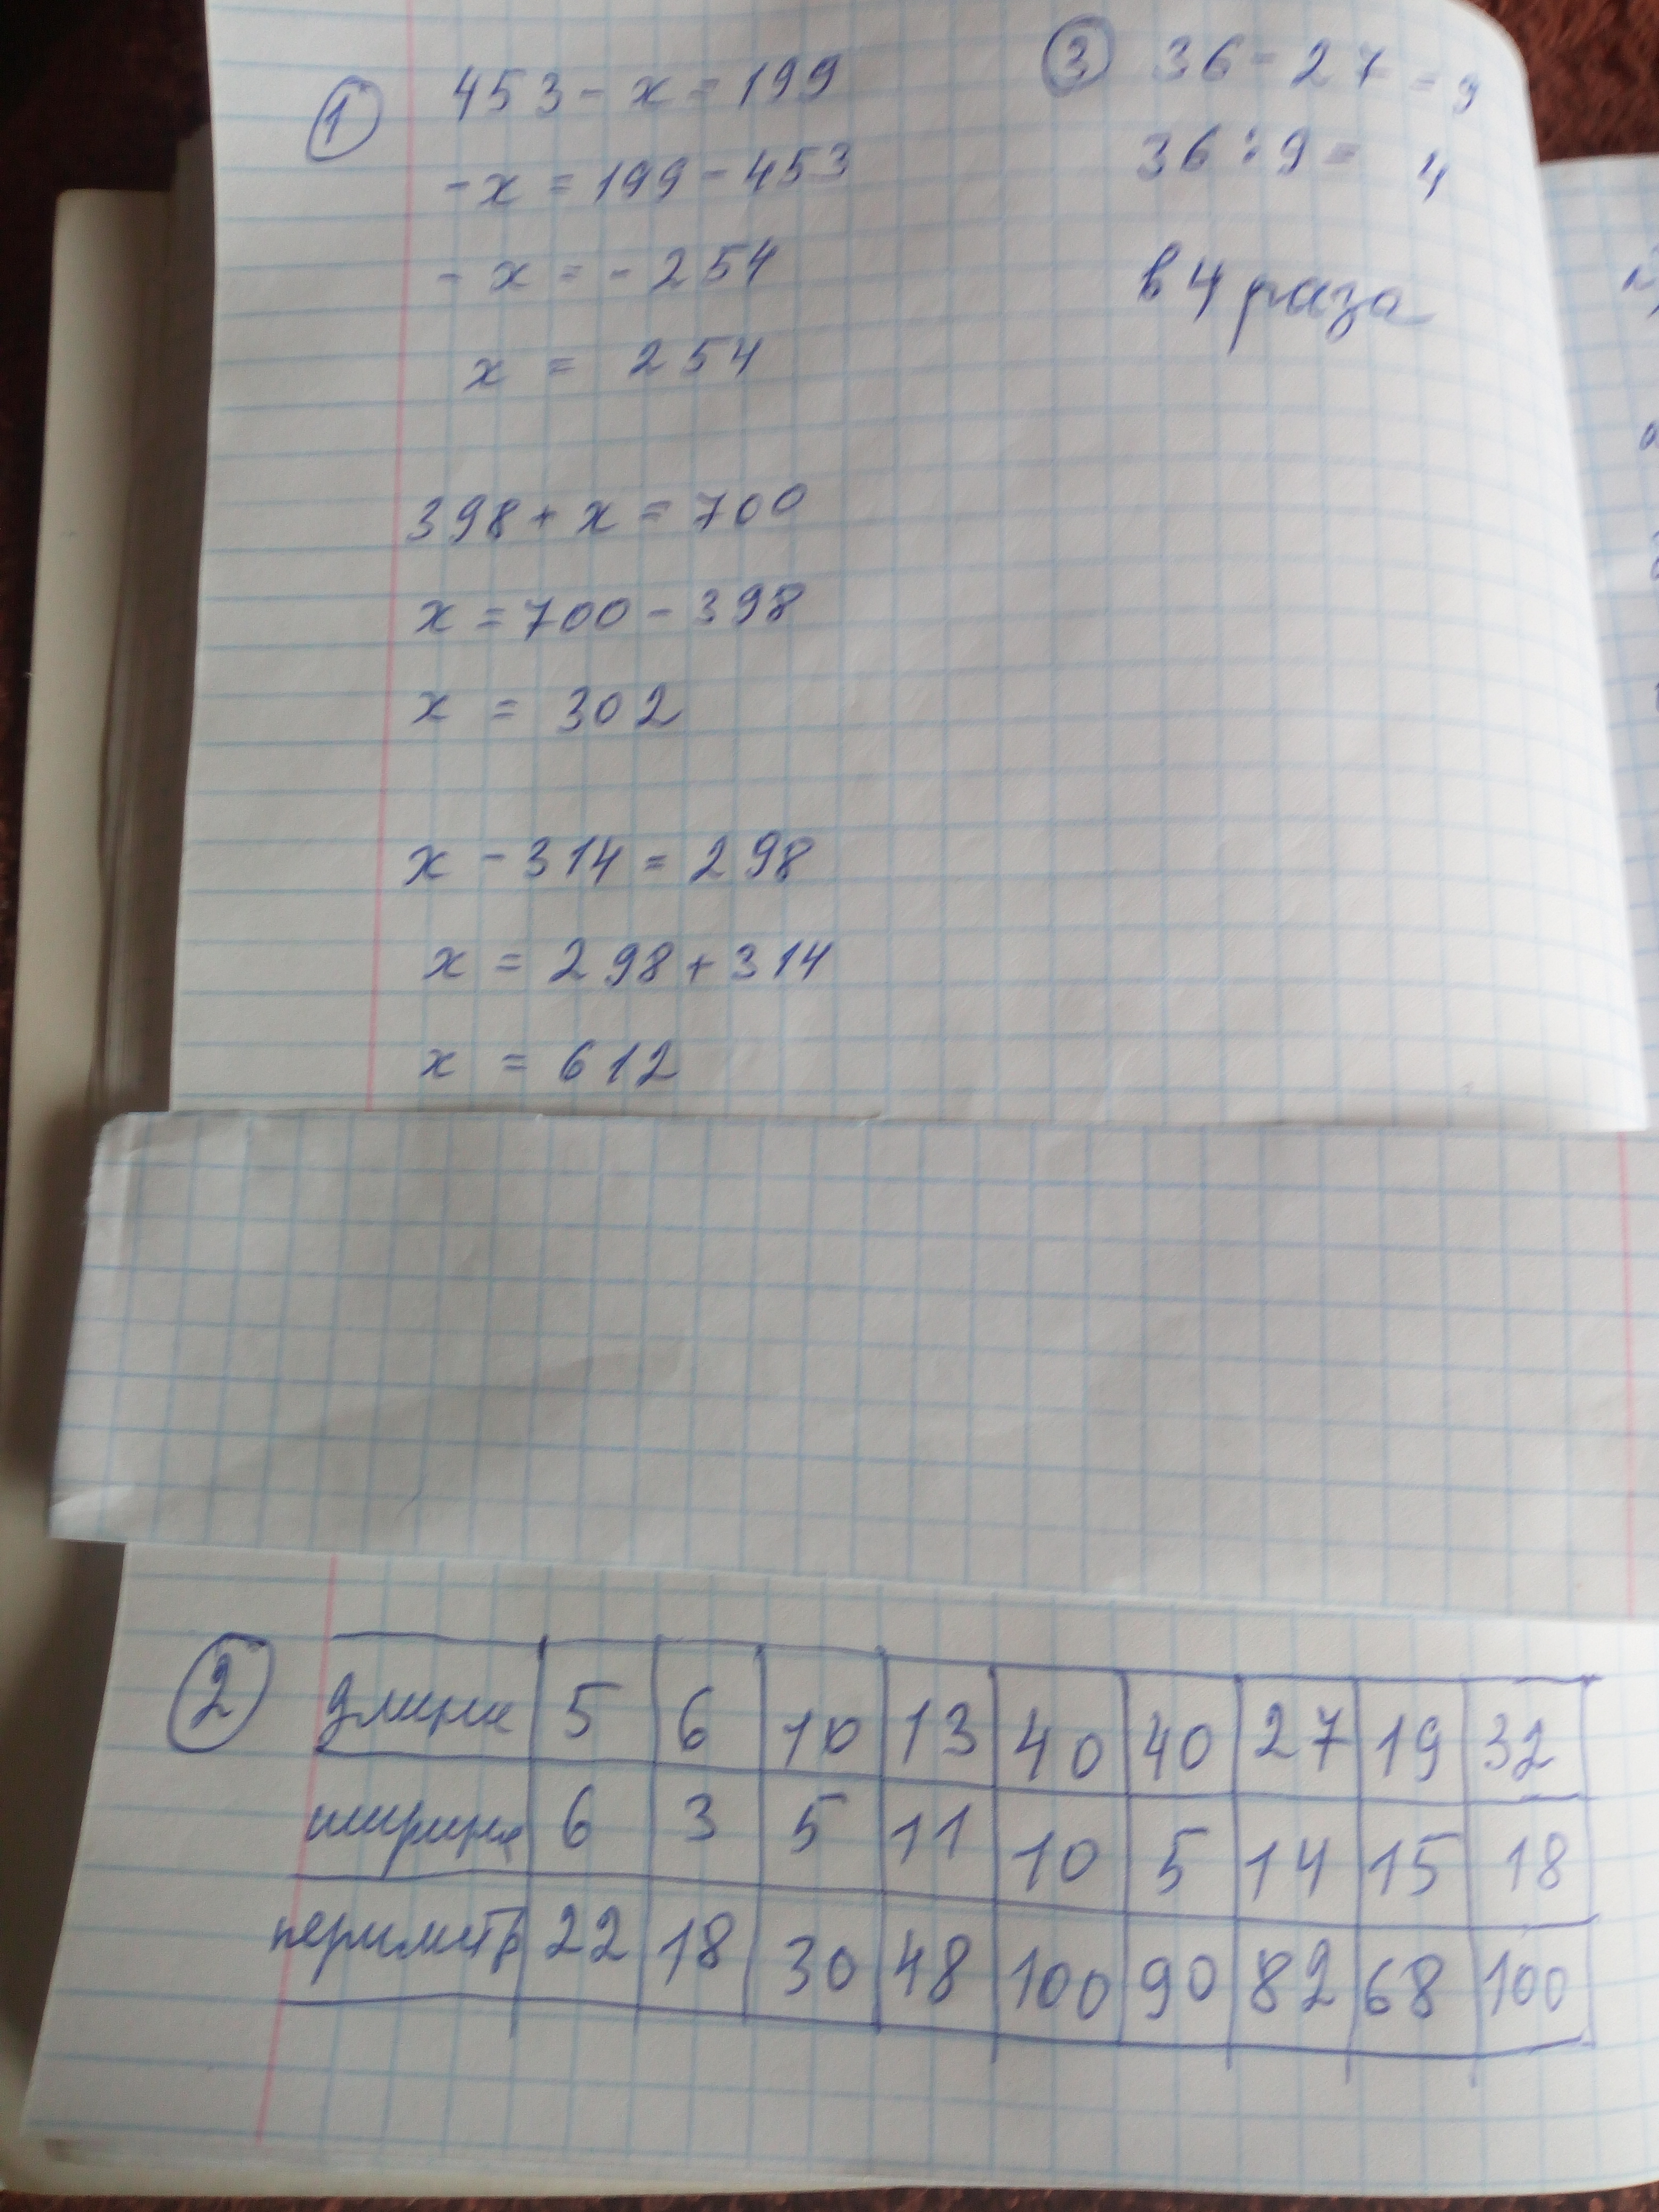 1
453 - x = 199
-x = 199 - 453
- x = - 254
x = 254
398 + x = 700
x = 700 - 398
x = 302
x - 314 = 298
x = 298 + 314
x = 612
3 36 - 27 = 9
36 : 9 = 4
в 4 раза
2
длина 5 6 10 13 40 40 27 19 32
ширина 6 3 5 11 10 5 14 15 18
периметр 22 18 30 48 100 90 82 68 100